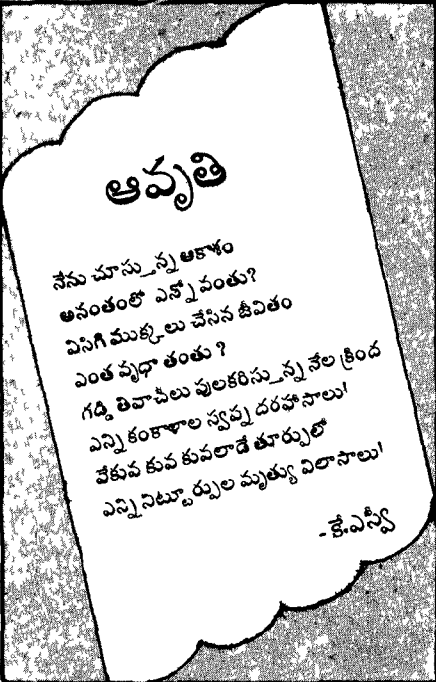 ఆవృతి
నేను చూస్తున్న ఆకాశం
అనంతంలో ఎన్నో వంతు?
విసిగి ముక్కలు చేసిన జీవితం
ఎంత వృధా తంతు ?
గడ్డి తివాచీలు పులకరిస్తున్న నేల క్రింద
ఎన్ని కంకాళాల స్వప్న దరహాసాలు!
వేకువ కువ కువలాడే తూర్పులో
ఎన్ని నిట్టూర్పుల మృత్యు విలాసాలు!
- కే.ఎస్వీ